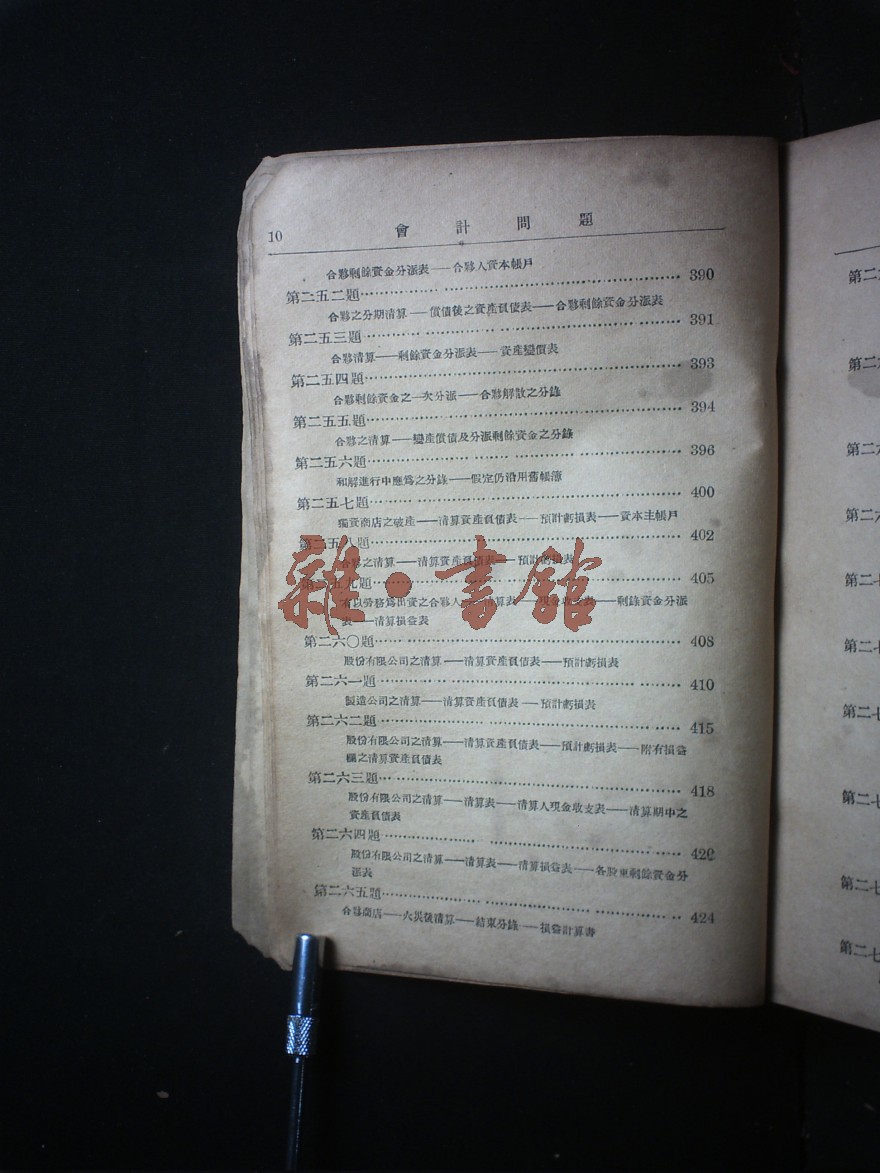 10 會計問題
合夥剩餘資金分派表——合夥人資本帳戶
第二五二題 390
合夥之分期清算——償債後之資產負債表——合夥剩餘資金分派表
第二五三題 391
合夥清算——剩餘資金分派表——資產變價表
第二五四題 393
合夥剩餘資金之一次分派——合夥解散之分錄
第二五五題 394
合夥之清算——變產償債及分派剩餘資金之分錄
第二五六題 396
和解進行中應爲之分錄——假定仍沿用舊帳簿
第二五七題 400
獨資商店之破產——清算資產負債表——預計虧損表——資本主帳戶
第二五八題 402
合夥之清算——清算資產負債表——預計虧損表
第二五九題 405
有以勞務爲出資之合夥人 清算表—— 表——剩餘資金分派
表——清算損益表
第二六〇題 408
股份有限公司之清算——清算資產負債表——預計虧損表
第二六一題 410
製造公司之清算——清算資產負債表——預計虧損表
第二六二題 415
股份有限公司之清算——清算資產負債表——預計虧損表——附有損益
欄之清算資產負債表
第二六三題 418
股份有限公司之清算——清算表——清算人現金收支表——清算期中之
資產負債表
第二六四題 420
股份有限公司之清算——清算表——清算損益表——各股東剩餘資金分
派表
第二六五題 424
合夥商店——火災後清算——結束分錄——損益計算書
雜·書館
第二
第二
第二
第二六
第二
第二七
第二七
第二七
第二七
第二七